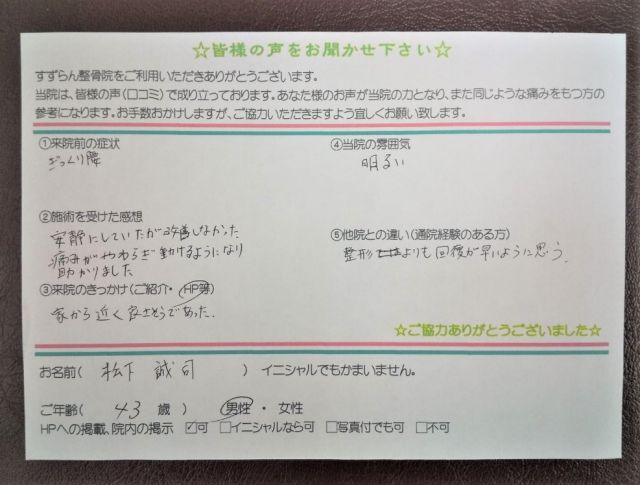 ☆皆様の声をお聞かせ下さい☆
すずらん整骨院をご利用いただきありがとうございます。
当院は、皆様の声(口コミ)で成り立っております。あなた様のお声が当院の力となり、また同じような痛みをもつ方の
参考になります。お手数おかけしますが、ご協力いただきますよう宜しくお願い致します。
①来院前の症状
ぎっくり腰
②施術を受けた感想
安静にしていたが改善しなかった
痛みがやわらぎ動けるようになり
助かりました
③来院のきっかけ(ご紹介・HP等)
家から近く良さそうであった.
④当院の雰囲気
明るい
⑤他院との違い(通院経験のある方)
整形よりも回復が早いように思う.
☆ご協力ありがとうございました☆
お名前( 松下 誠司 )イニシャルでもかまいません。
ご年齢( 43 歳 ) 男性 ・ 女性
HPへの掲載、院内の掲示 ☑可 □イニシャルなら可 □写真付でも可 □不可